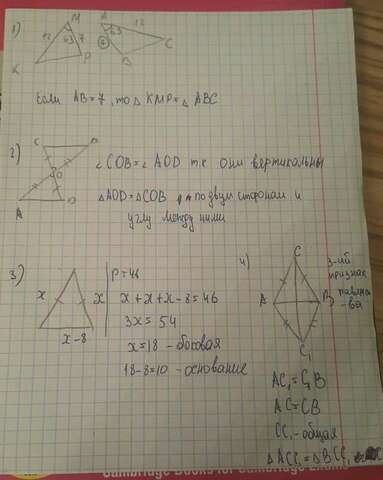 1)
M
12
63
7
K
P
A
12
63
7
C
B
Если AB=7, то △ KMP = △ ABC
2)
C
B
O
A
D
∠COB=∠AOD т.к они вертикальны
△AOD=△COB по двум сторонам и
углу между ними
3)
x
x
x-8
P=46
x+x+x-8=46
3x=54
x=18 - боковая
18-8=10 - основание
4)
C
A
B
C₁
3-ий
признак
равенст
-ва
AC₁=C₁B
AC=CB
CC₁-общая
△ACC₁=△BCC₁
Cambridge Books for Cambridge Exams